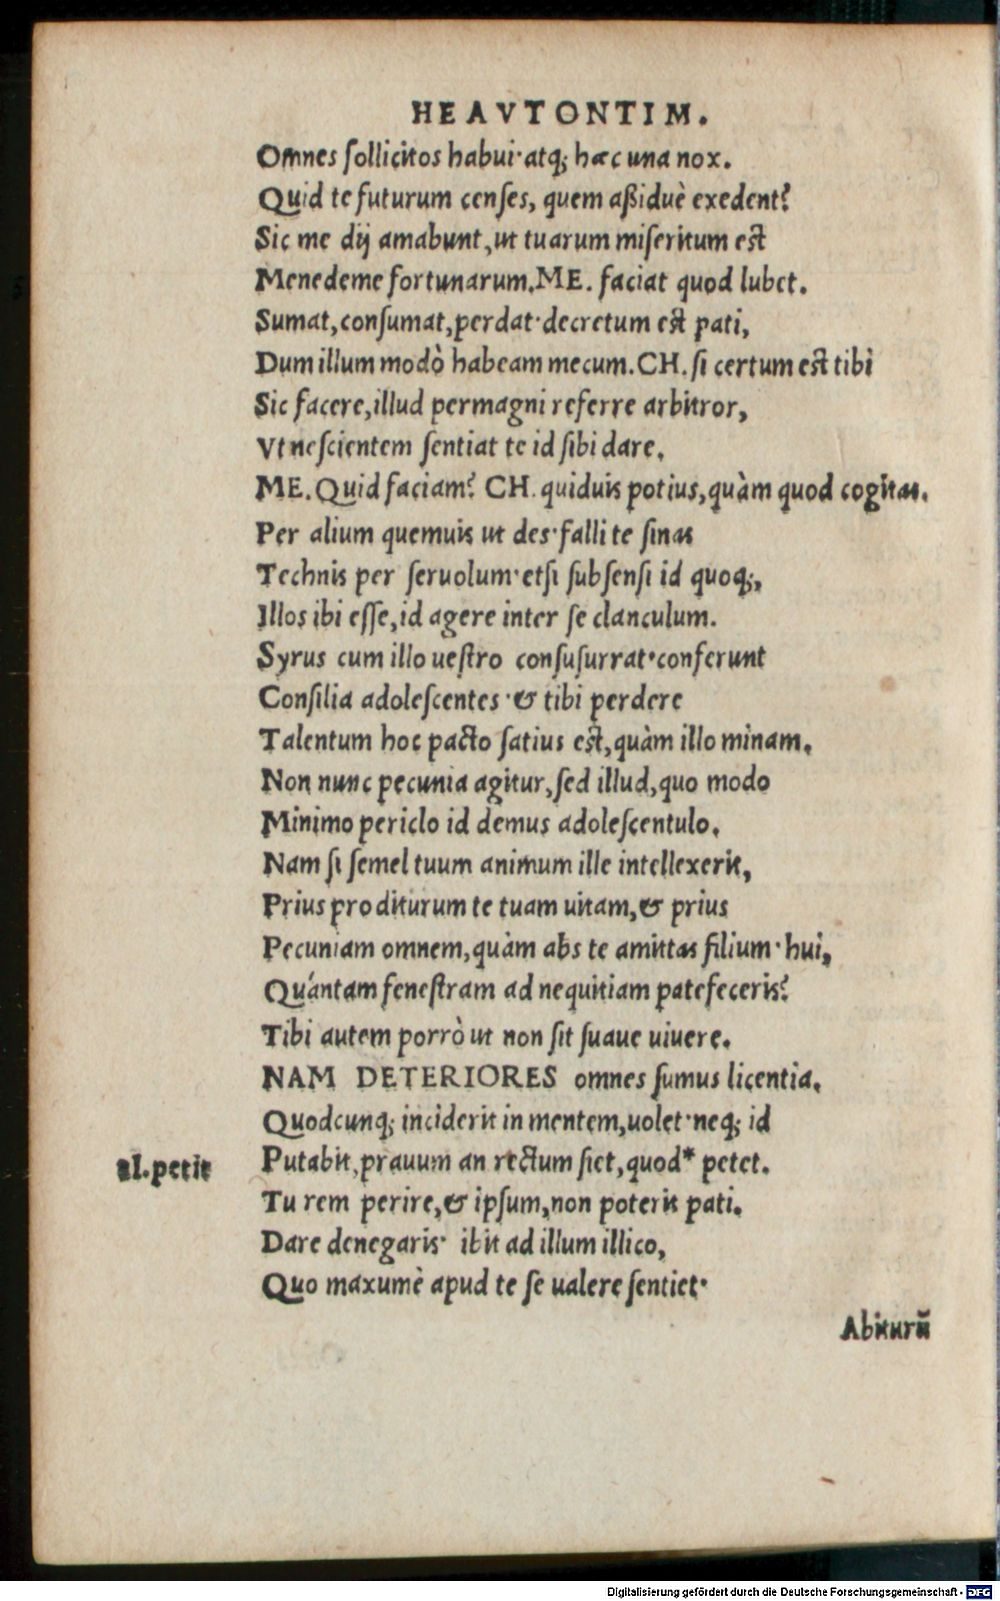 HEAVTONTIM.
Omnes ſollicitos habui·atq; hæc una nox.
Quid te futurum cenſes, quem aßiduè exedent?
Sic me dij amabunt, ut tuarum miſeritum est
Menedeme fortunarum. ME. faciat quod lubet.
Sumat, conſumat, perdat·decretum est pati,
Dum illum modò habeam mecum. CH. ſi certum est tibi
Sic facere, illud permagni referre arbitror,
Vt neſcientem ſentiat te id ſibi dare.
ME. Quid faciam? CH. quiduis potius, quàm quod cogitas.
Per alium quemuis ut des·falli te ſinas
Technis per ſeruolum·etſi ſubſenſi id quoq;,
Illos ibi eſſe, id agere inter ſe clanculum.
Syrus cum illo ueſtro conſuſurrat·conferunt
Conſilia adoleſcentes·& tibi perdere
Talentum hoc pacto ſatius est, quàm illo minam.
Non nunc pecunia agitur, ſed illud, quo modo
Minimo periclo id demus adoleſcentulo.
Nam ſi ſemel tuum animum ille intellexerit,
Prius proditurum te tuam uitam, & prius
Pecuniam omnem, quàm abs te amittas filium·hui,
Quántam feneſtram ad nequitiam patefeceris?
Tibi autem porrò ut non ſit ſuaue uiuere.
NAM DETERIORES omnes ſumus licentia.
Quodcunq; inciderit in mentem, uolet·neq; id
Putabit, prauum an rectum ſiet, quod* petet.
al. petit
Tu rem perire, & ipſum, non poteris pati.
Dare denegaris· ibit ad illum illico,
Quo maxumè apud te ſe ualere ſentiet·
Abiturū
Digitalisierung gefördert durch die Deutsche Forschungsgemeinschaft - DFG